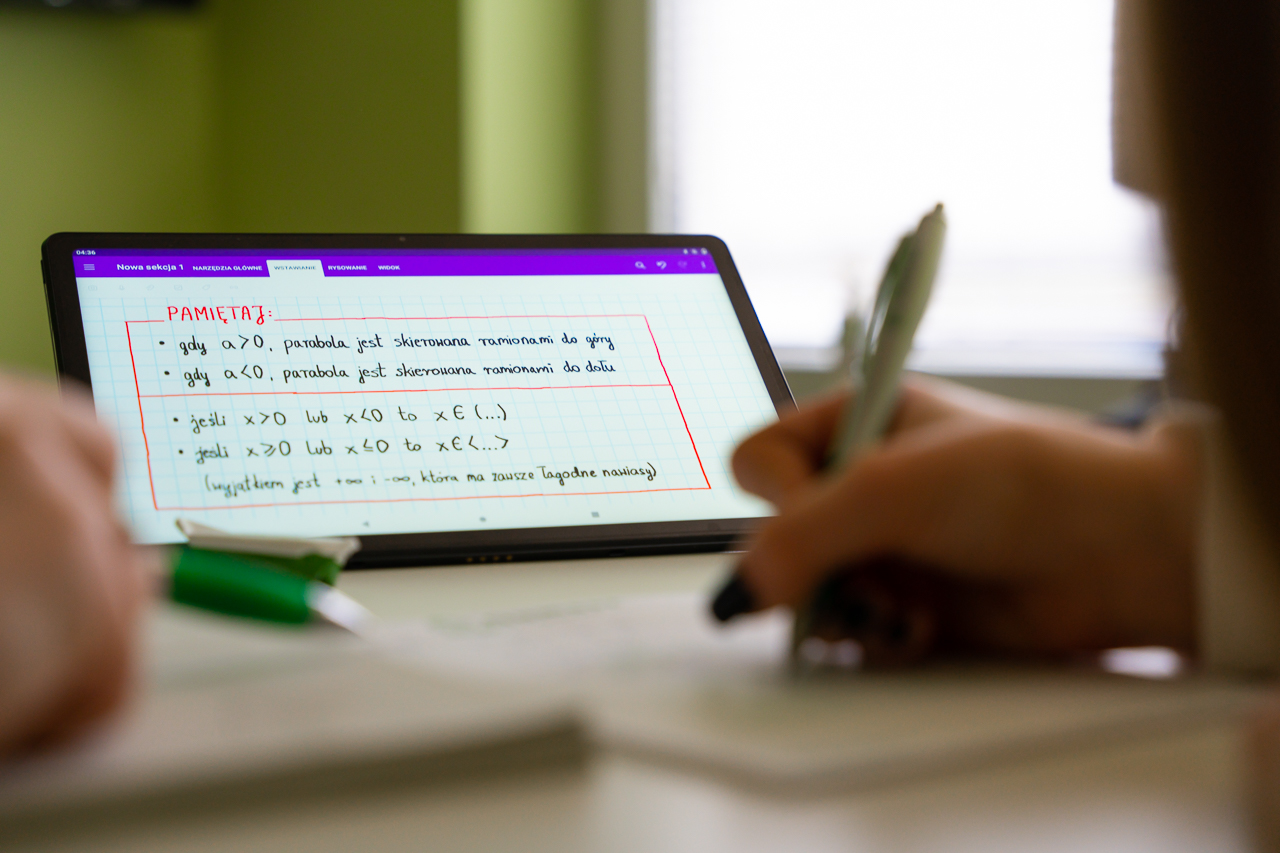 04:36
Nowa sekcja 1 NARZĘDZIA GŁÓWNE WSTAWIANIE RYSOWANIE WIDOK
PAMIĘTAJ:
• gdy a>0, parabola jest skierowana ramionami do góry
• gdy a<0, parabola jest skierowana ramionami do dołu
• jeśli x>0 lub x<0 to x∈(...)
• jeśli x⩾0 lub x≤0 to x∈<...>
(wyjątkiem jest +∞ i -∞, która ma zawsze łagodne nawiasy)